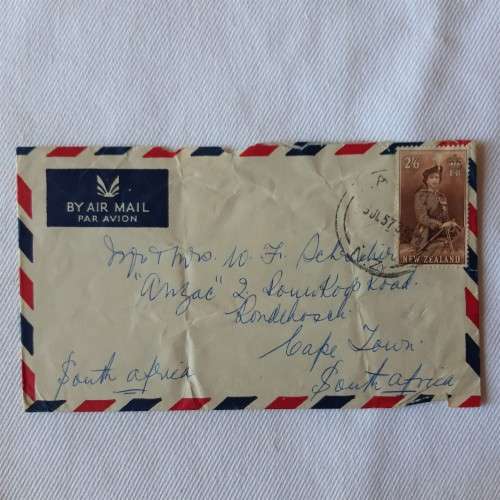 BY AIR MAIL
PAR AVION
2/6
E II R
JUL 57
NEW ZEALAND
Mr & Mrs. W. F.
"Anzac" 2, Road.
Rondebosch.
Cape Town.
South Africa
South Africa